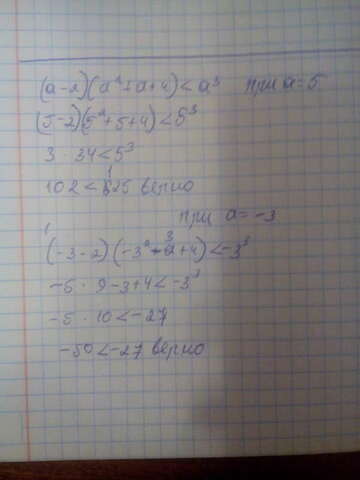 (a-2)(a²+a+4)<a³ при a=5
(5-2)(5²+5+4)<5³
3 · 34<5³
102<125 верно
при a=-3
(-3-2)(-3²-3+4)<-3³
-5 · 9-3+4<-3³
-5 · 10<-27
-50<-27 верно